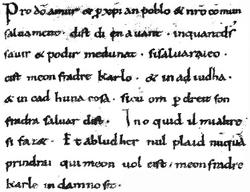 Pro dō amur & p xp̄ian poblo & nr̄o comun
saluament · dist di en auant · inquantdſ
sauir & podir medunat · sisaluaraieo ·
cist meon fradre karlo · & in ad iudha ·
& in cad huna cosa · sicū om p dreit son
fradra saluar dist · Ino quid il mialtre
si faz& · Et abludher nul plaid nūquā
prindrai qui meon uol cist · meon fradre
karle in damno sit ·